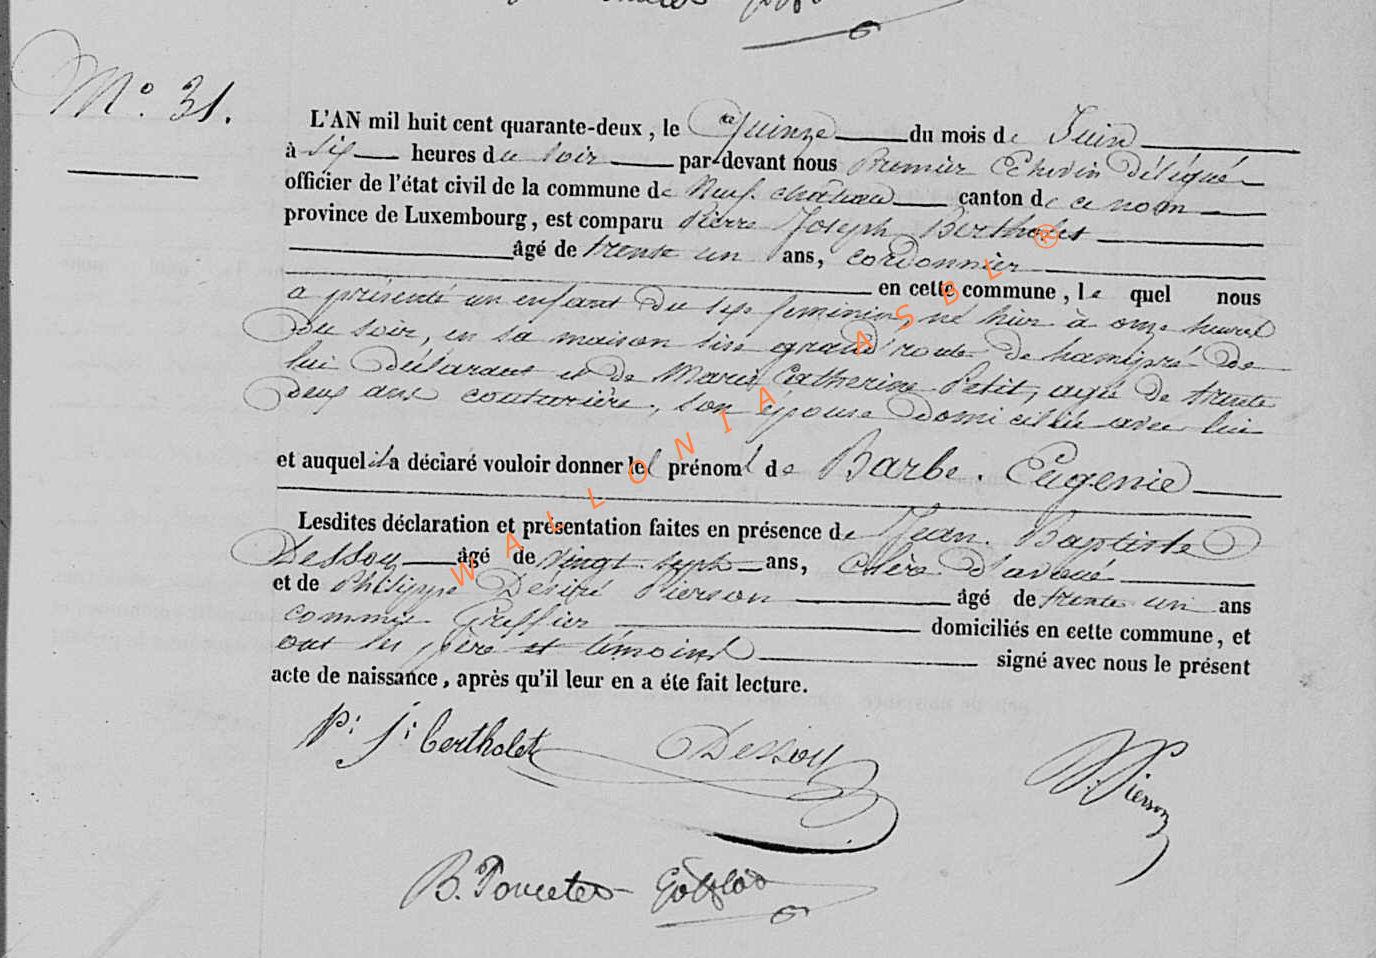 N° 31.
L'AN mil huit cent quarante-deux, le quinze du mois de Juin
à six heures du soir par-devant nous Premier Echevin délégué
officier de l'état civil de la commune de Neufchâteau canton de ce nom
province de Luxembourg, est comparu Pierre Joseph Bertholet
âgé de trente un ans, cordonnier
en cette commune, le quel nous
a présenté un enfant du sexe feminin, né hier à onze heures
du soir, en sa maison sise grand'route de hamipré de
lui déclarant et de Marie Catherine Petit, agée de trente
deux ans couturière, son épouse domiciliée avec lui
et auquel il a déclaré vouloir donner les prénoms de Barbe. Eugenie
Lesdites déclaration et présentation faites en présence de Jean Baptiste
Dessoy âgé de vingt sept ans, clerc d'avoué
et de Philippe Désiré Pierson âgé de trente un ans
commis Greffier domiciliés en cette commune, et
ont les père et témoins signé avec nous le présent
acte de naissance, après qu'il leur en a éte fait lecture.
P: J: Bertholet Dessoy Pierson
B. Poncelet
WALLONIA ASBL ®